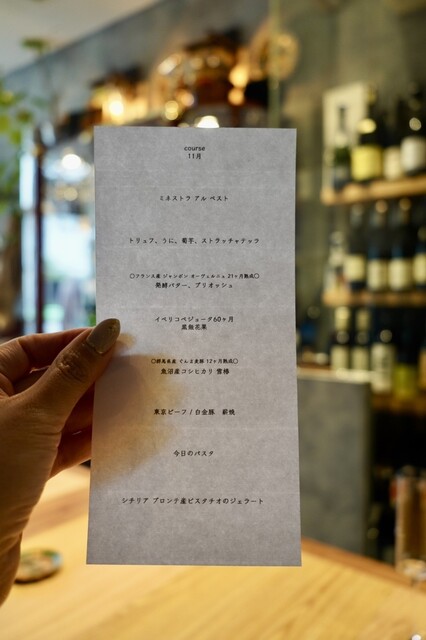 course
11月
ミネストラ アル ペスト
トリュフ、うに、菊芋、ストラッチャテッラ
〇フランス産 ジャンボン オーヴェルニュ 21ヶ月熟成〇
発酵バター、ブリオッシュ
イベリコベジョータ60ヶ月
黒無花果
〇群馬県産 ぐんま麦豚 12ヶ月熟成〇
魚沼産コシヒカリ 雪椿
東京ビーフ / 白金豚 薪焼
今日のパスタ
シチリア ブロンテ産ピスタチオのジェラート